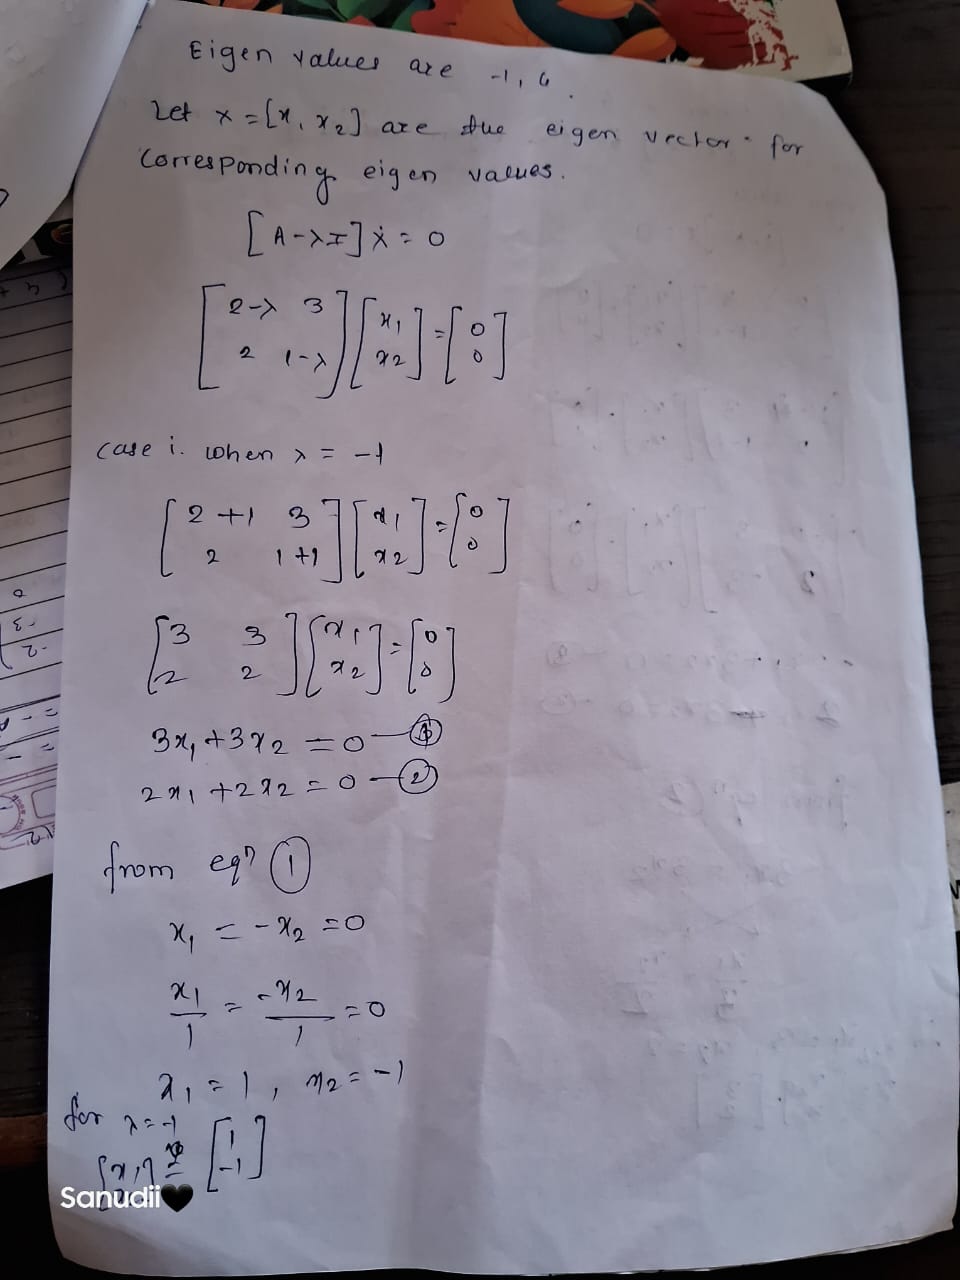 Eigen values are -1, 6.
Let x = [x₁ x₂] are the eigen vector for
corresponding eigen values.
[A-λI] x = 0
[2-λ 3] [x₁] = [0]
[2 1-λ] [x₂] [0]
case i. when λ = -1
[2+1 3] [x₁] = [0]
[2 1+1] [x₂] [0]
[3 3] [x₁] = [0]
[2 2] [x₂] [0]
3x₁ + 3x₂ = 0 — ①
2x₁ + 2x₂ = 0 — ②
from eqⁿ ①
x₁ = -x₂ = 0
x₁/1 = -x₂/1 = 0
x₁ = 1, x₂ = -1
for λ = -1
[x₁] = [1]
[-1]
Sanudii🖤